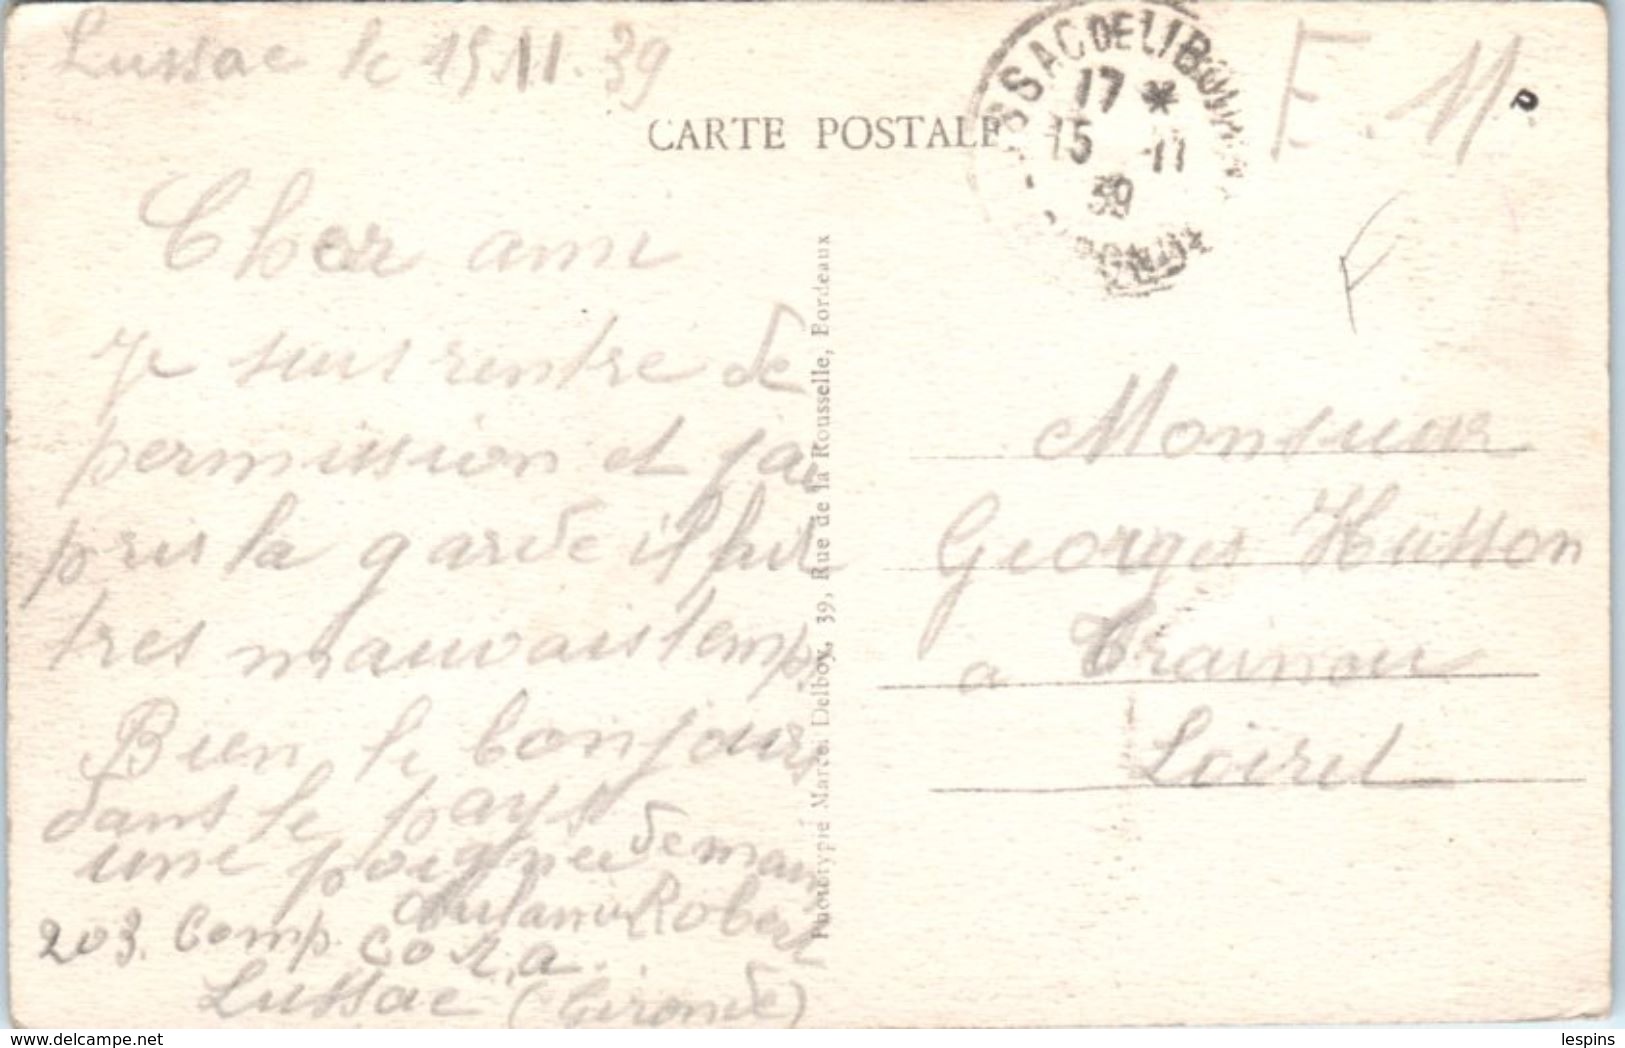 Lussac le 15 11. 39
CARTE POSTALE
SSAC DE LIBOURNE
17 *
15 -11
39
F. M.
P
F
Cher ami
Je suis rentre de
permission et jai
pris la garde il fait
tres mauvais temps
Bien le bonjour
dans le pays
une poignee de main
Robert
203. Comp. co R. a.
Lussac (Gironde)
Phototypie Marcel Delboy, 39, Rue de la Rousselle, Bordeaux
Monsieur
Georges Husson
a Trainou
Loiret
lespins